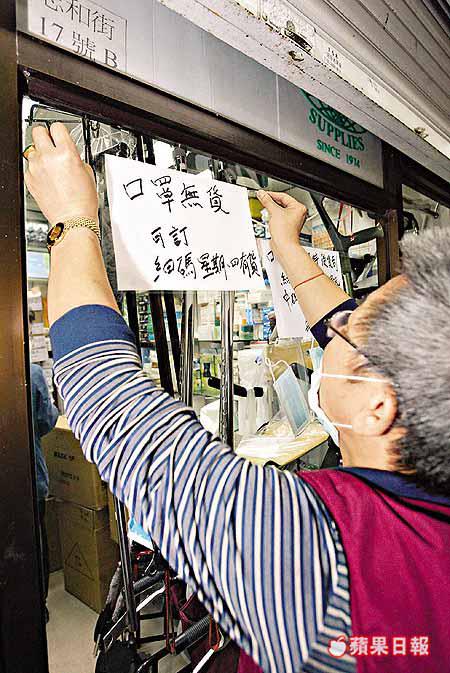 和街
17號B
SUPPLIES
SINCE 1914
口罩無貨
可訂
細碼星期四有貨
蘋果日報